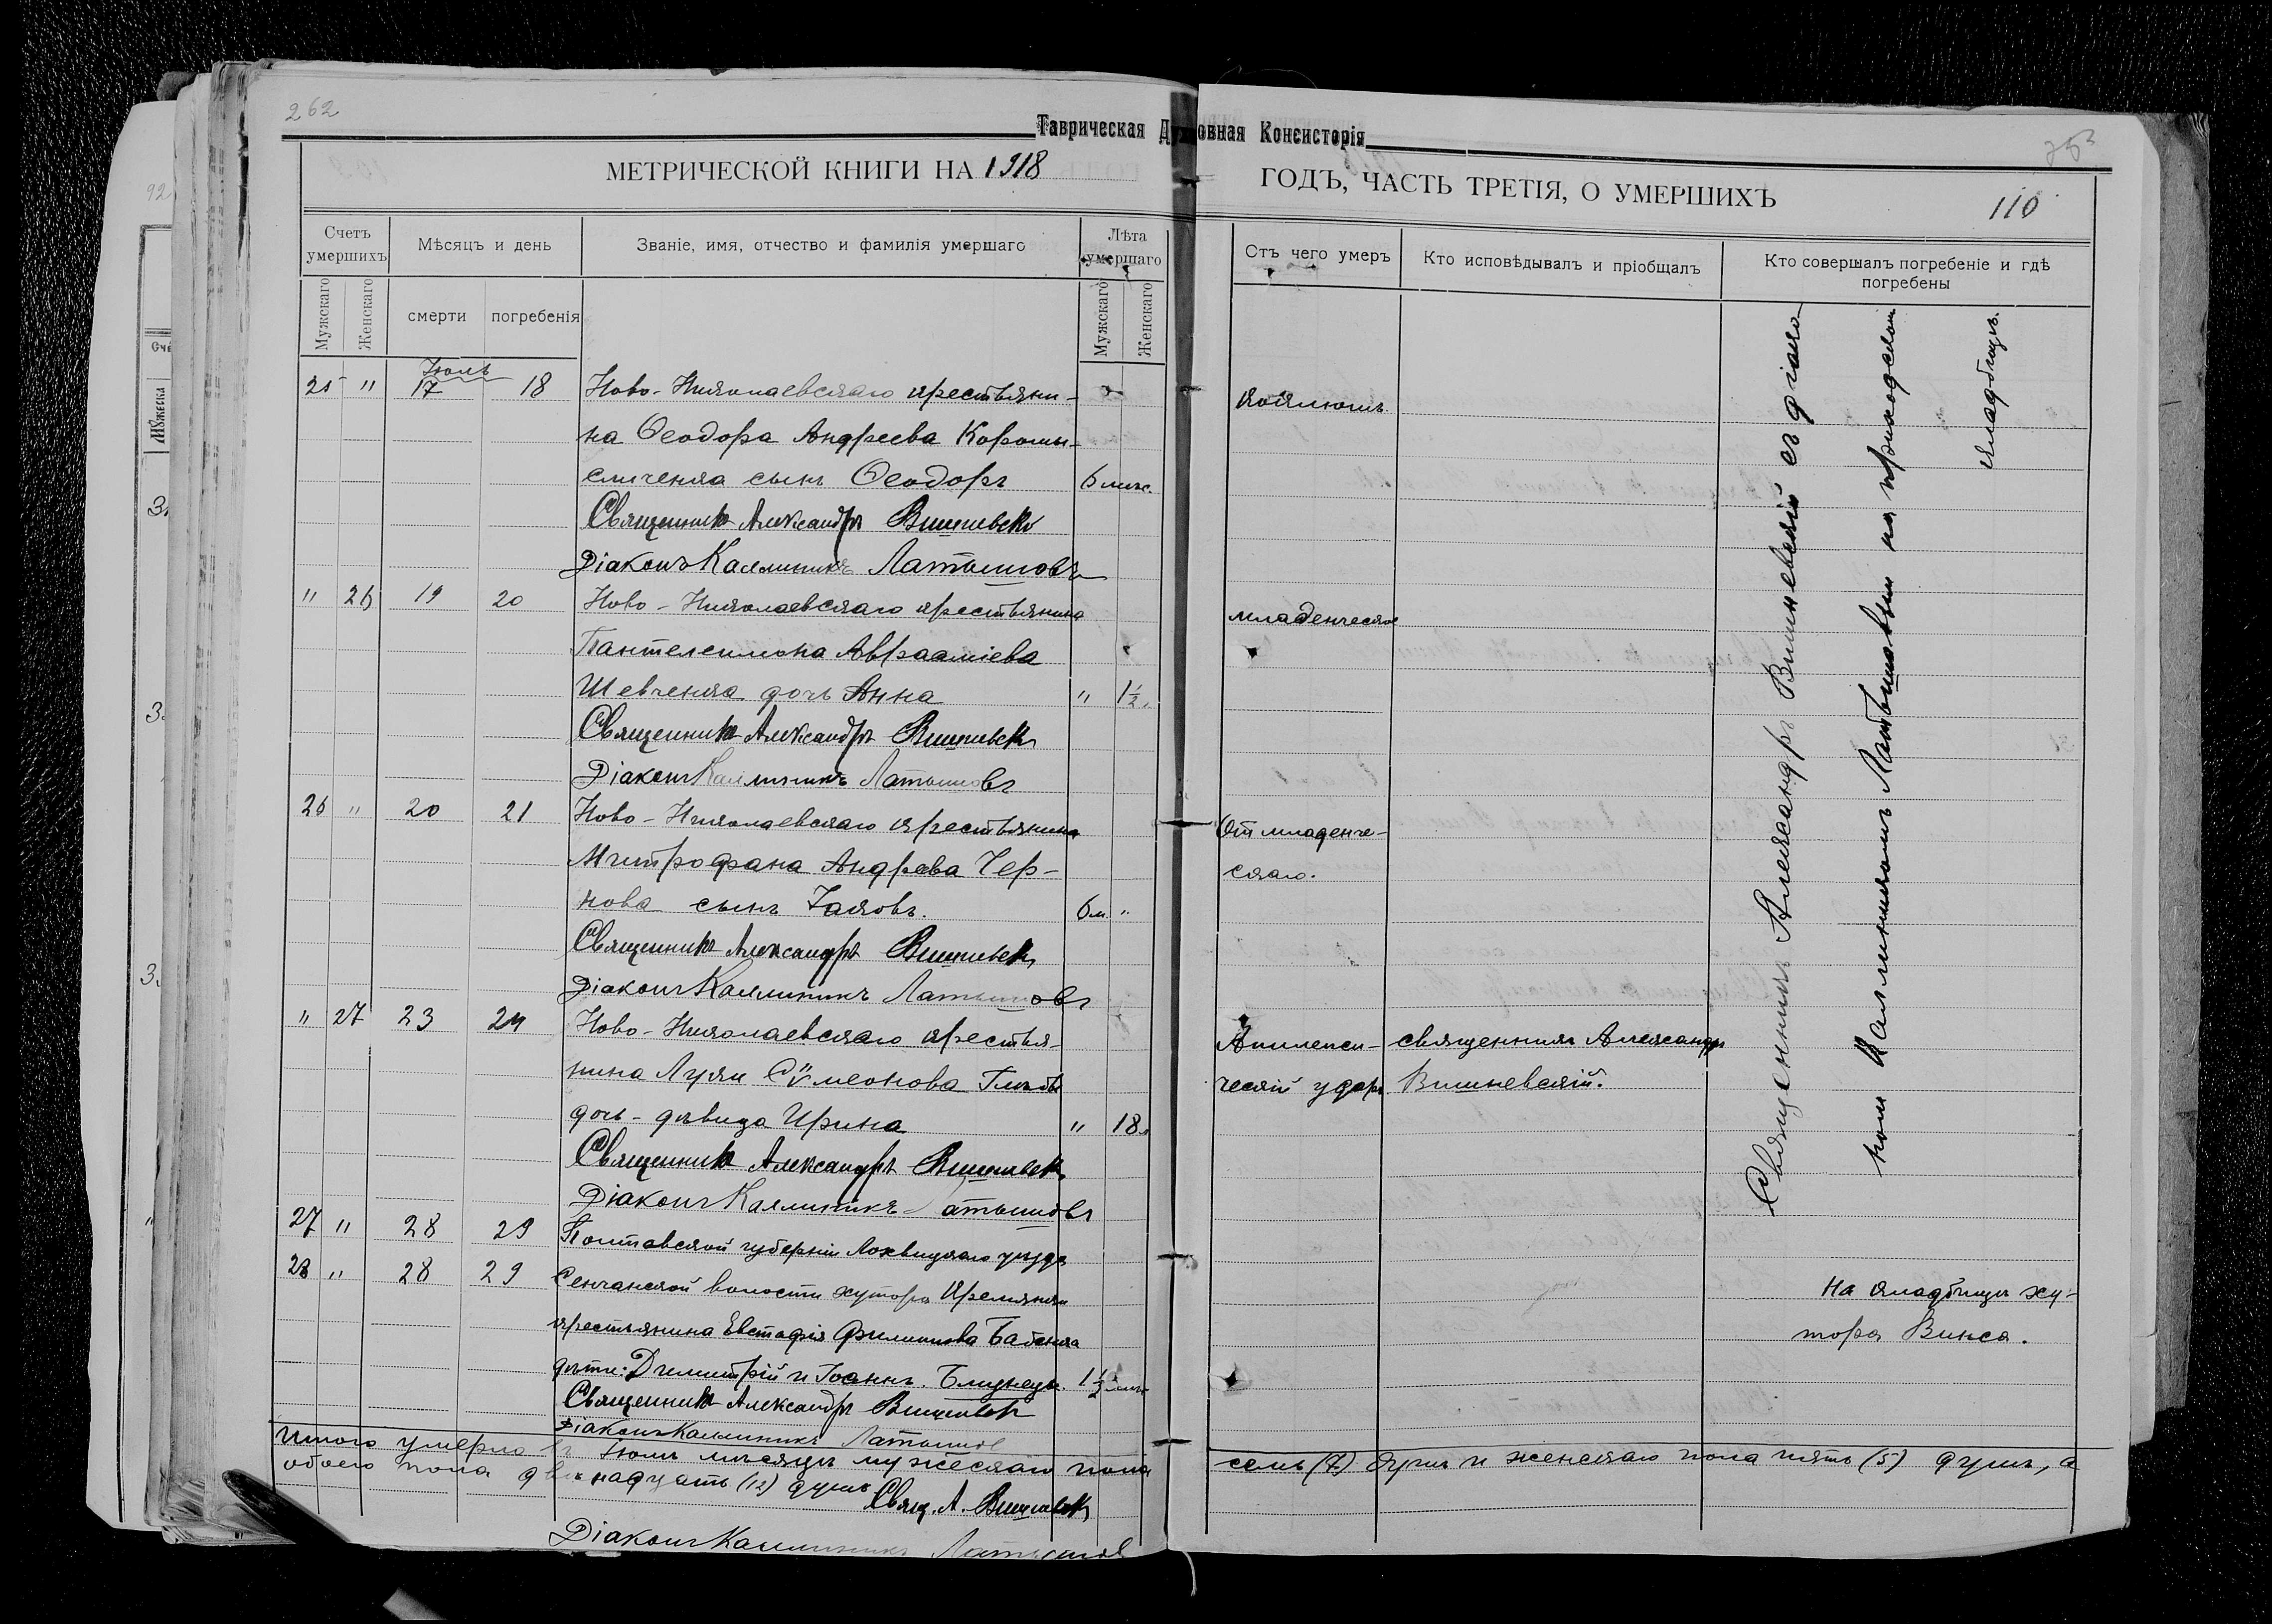 262
Таврическая Духовная Консисторія
МЕТРИЧЕСКОЙ КНИГИ НА 1918
ГОДЪ, ЧАСТЬ ТРЕТІЯ, О УМЕРШИХЪ
110
Счетъ умершихъ
Мѣсяцъ и день
Званіе, имя, отчество и фамилія умершаго
Лѣта умершаго
Отъ чего умеръ
Кто исповѣдывалъ и пріобщалъ
Кто совершалъ погребеніе и гдѣ погребены
Мужскаго
Женскаго
смерти
погребенія
Мужскаго
Женскаго
Іюль
25 " 17 18 Ново-Николаевскаго крестьяни-
на Ѳеодора Андреева Коромы-
сличенка сынъ Ѳеодоръ 6 мѣс.
Священникъ Александръ Вишневскі
Діаконъ Каллиникъ Латышовъ
" 26 19 20 Ново-Николаевскаго крестьянина младенческой
Пантелеимона Авраамiева
Шевченка дочь Анна " 1½
Священникъ Александръ Вишневск
Діаконъ Каллиникъ Латышовъ
26 " 20 21 Ново-Николаевскаго крестьянина От младенче-
Митрофана Андреева Чер- скаго.
нова сынъ Іаковъ. 6 м. "
Священникъ Александръ Вишневск
Діаконъ Каллиникъ Латышовъ
" 27 23 24 Ново-Николаевскаго крестья- Апилепси- священникъ Александръ
нина Луки Сѵмеонова ческій ударъ Вишневскій.
дочь-дѣвица Ирина " 18
Священникъ Александръ Вишневск
Діаконъ Каллиникъ Латышовъ
27 " 28 29 Полтавской губерніи Лохвицкаго уѣзда
28 " 28 29 Сенчанской волости хутора
крестьянина Евстафія Филиппова Бабенка
дѣти: Димитрій и Іоаннъ. Близнецы. 1½
Священникъ Александръ Вишневск
Діаконъ Каллиникъ Латышов
Священникъ Александръ Вишневскій съ діако-
ном Каллиникомъ Латышовым на приходском
кладбищѣ.
на кладбищѣ ху-
тора Винса.
Итого умерло въ Іюлѣ мѣсяцѣ мужескаго пола семь (7) душъ и женскаго пола пять (5) душъ, а
обоего пола двѣнадцать (12) душъ
Свящ. А. Вишневск
Діаконъ Каллиникъ Латышов